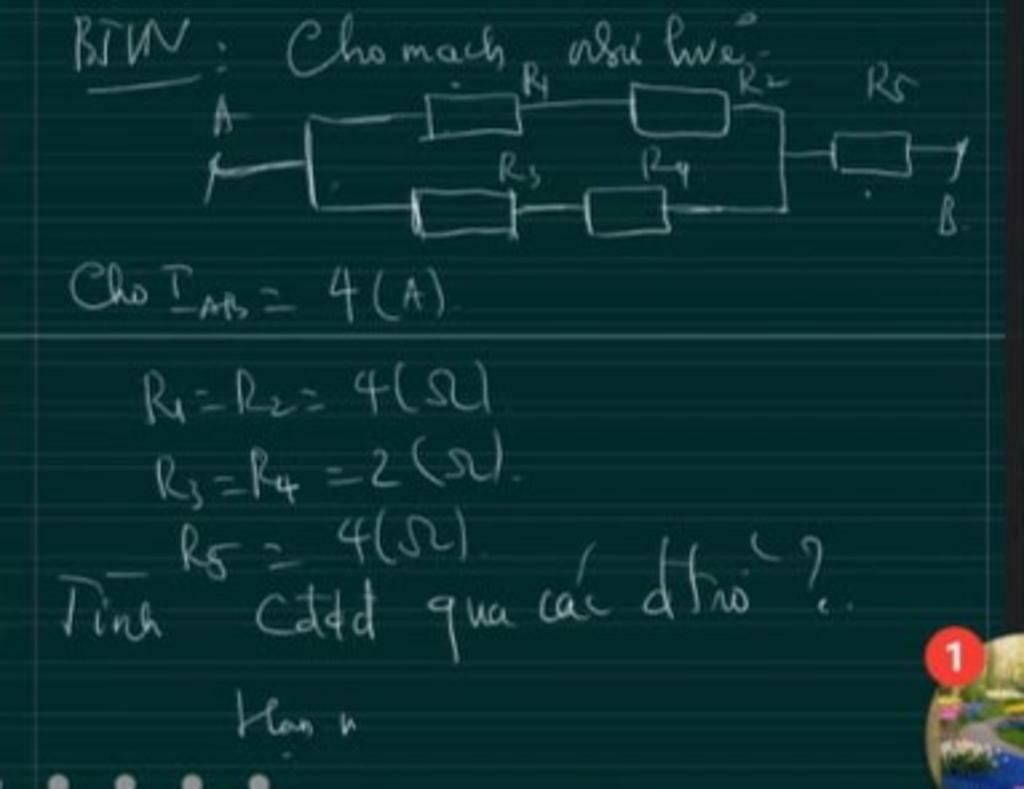 BTVN: Cho mạch như hvẽ
R1 R2 R5
A
R3 R4
B
Cho I_AB = 4 (A).
R1 = R2 = 4 (Ω)
R3 = R4 = 2 (Ω).
R5 = 4 (Ω).
Tính cđdđ qua các đtrở?
1